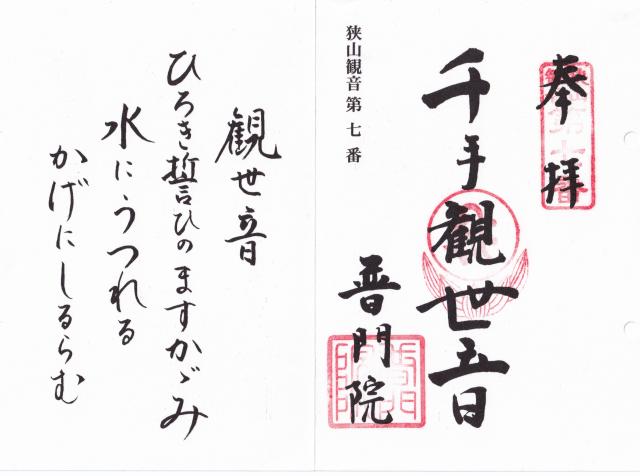 奉拝
千手観世音
狭山観音第七番
普門院
観世音
ひろき誓ひのますかゞみ
水にうつれる
かげにしるらむ